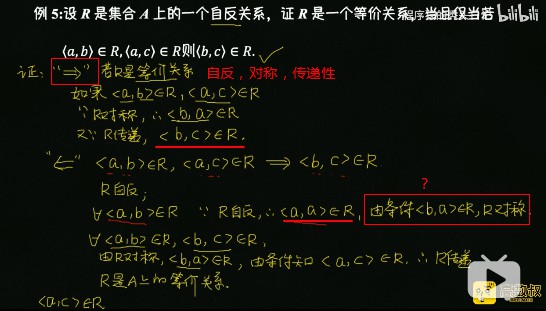 例 5:设 R 是集合 A 上的一个自反关系，证 R 是一个等价关系，当且仅当若
⟨a,b⟩ ∈ R,⟨a,c⟩ ∈ R则⟨b,c⟩ ∈ R.
bilibili
证: "⇒" 若R是等价关系 自反，对称，传递性
如果<a,b>∈R, <a,c>∈R
∵ R对称, ∴ <b,a>∈R
又∵ R传递, <b,c>∈R.
"⇐" <a,b>∈R, <a,c>∈R ⟹ <b,c>∈R
R自反;
?
∀<a,b>∈R ∵ R自反,∴<a,a>∈R, 由条件<b,a>∈R, R对称.
∀<a,b>∈R, <b,c>∈R,
由R对称, <b,a>∈R, 由条件知 <a,c>∈R. ∴ R传递
R是A上的等价关系.
<a,c>∈R
高数叔